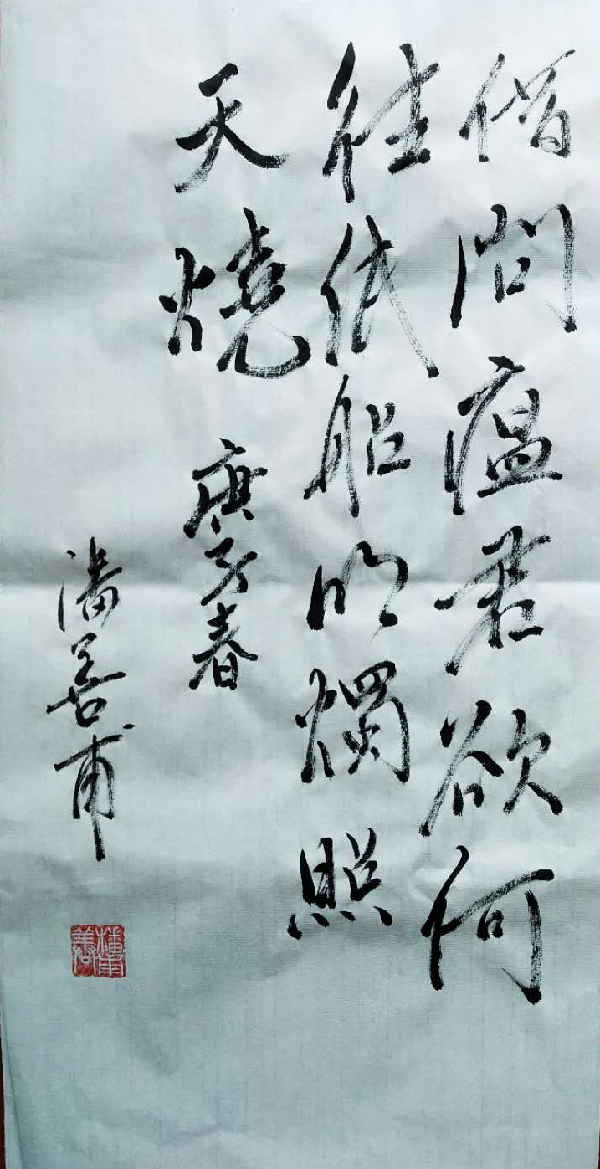 借問瘟君欲何
往紙船明燭照
天燒
庚子春
潘善甫